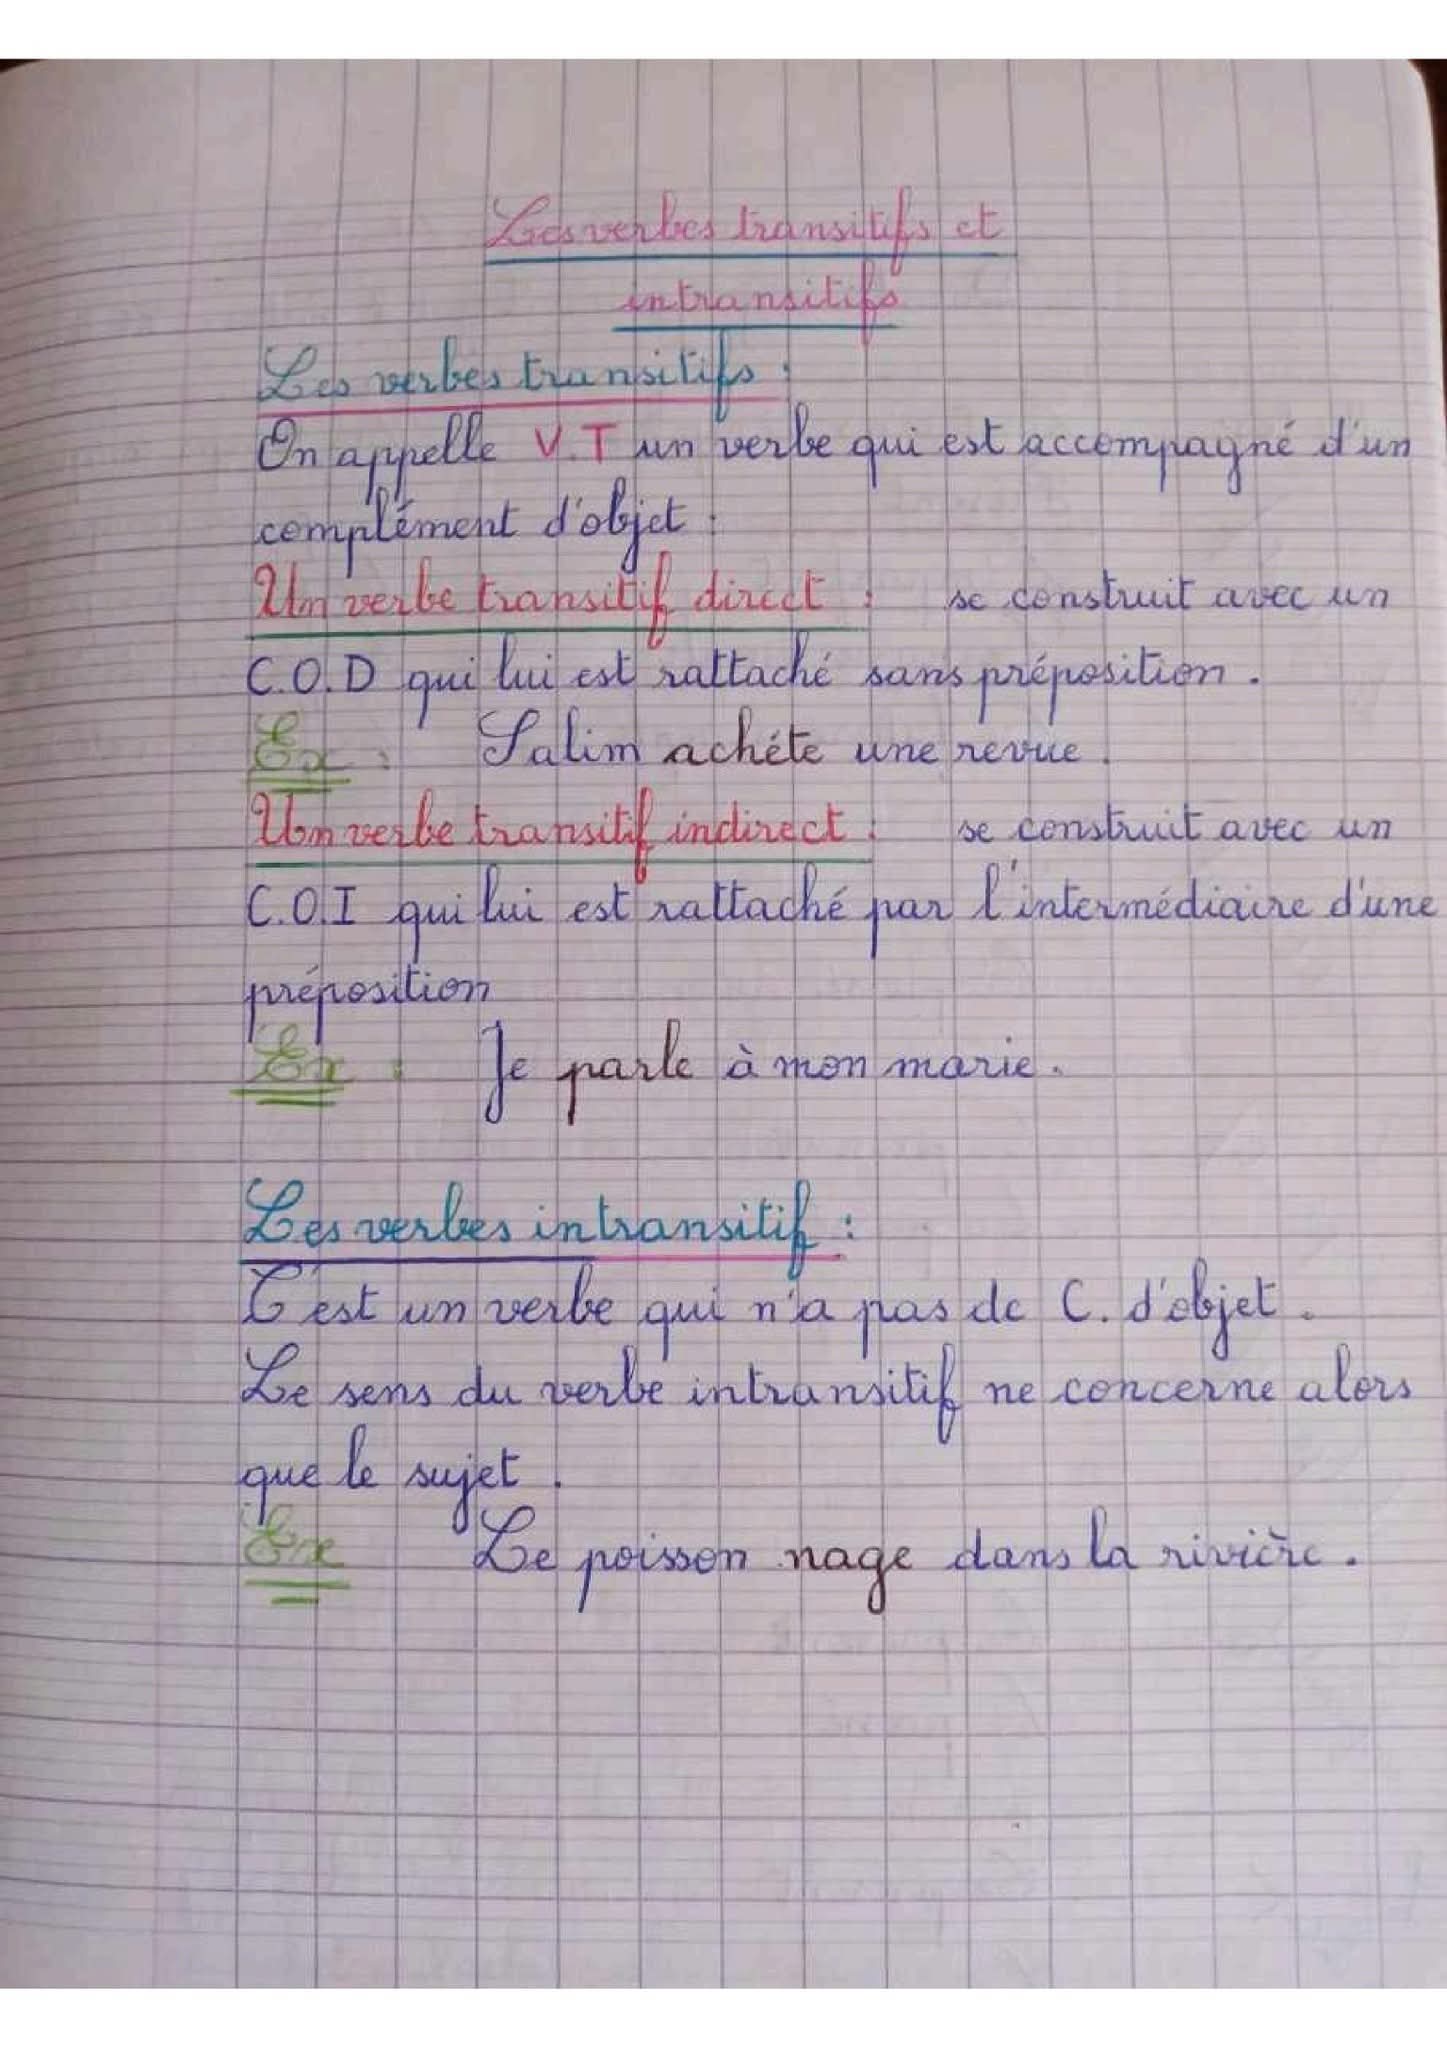 Les verbes transitifs et
intransitifs
Les verbes transitifs :
On appelle V.T un verbe qui est accompagné d'un
complément d'objet :
Un verbe transitif direct : se construit avec un
C.O.D qui lui est rattaché sans préposition.
Ex : Salim achéte une revue.
Un verbe transitif indirect : se construit avec un
C.O.I qui lui est rattaché par l'intermédiaire d'une
préposition
Ex : Je parle à mon marie.
Les verbes intransitif :
C'est un verbe qui n'a pas de C. d'objet.
Le sens du verbe intransitif ne concerne alors
que le sujet.
Ex Le poisson nage dans la rivière.